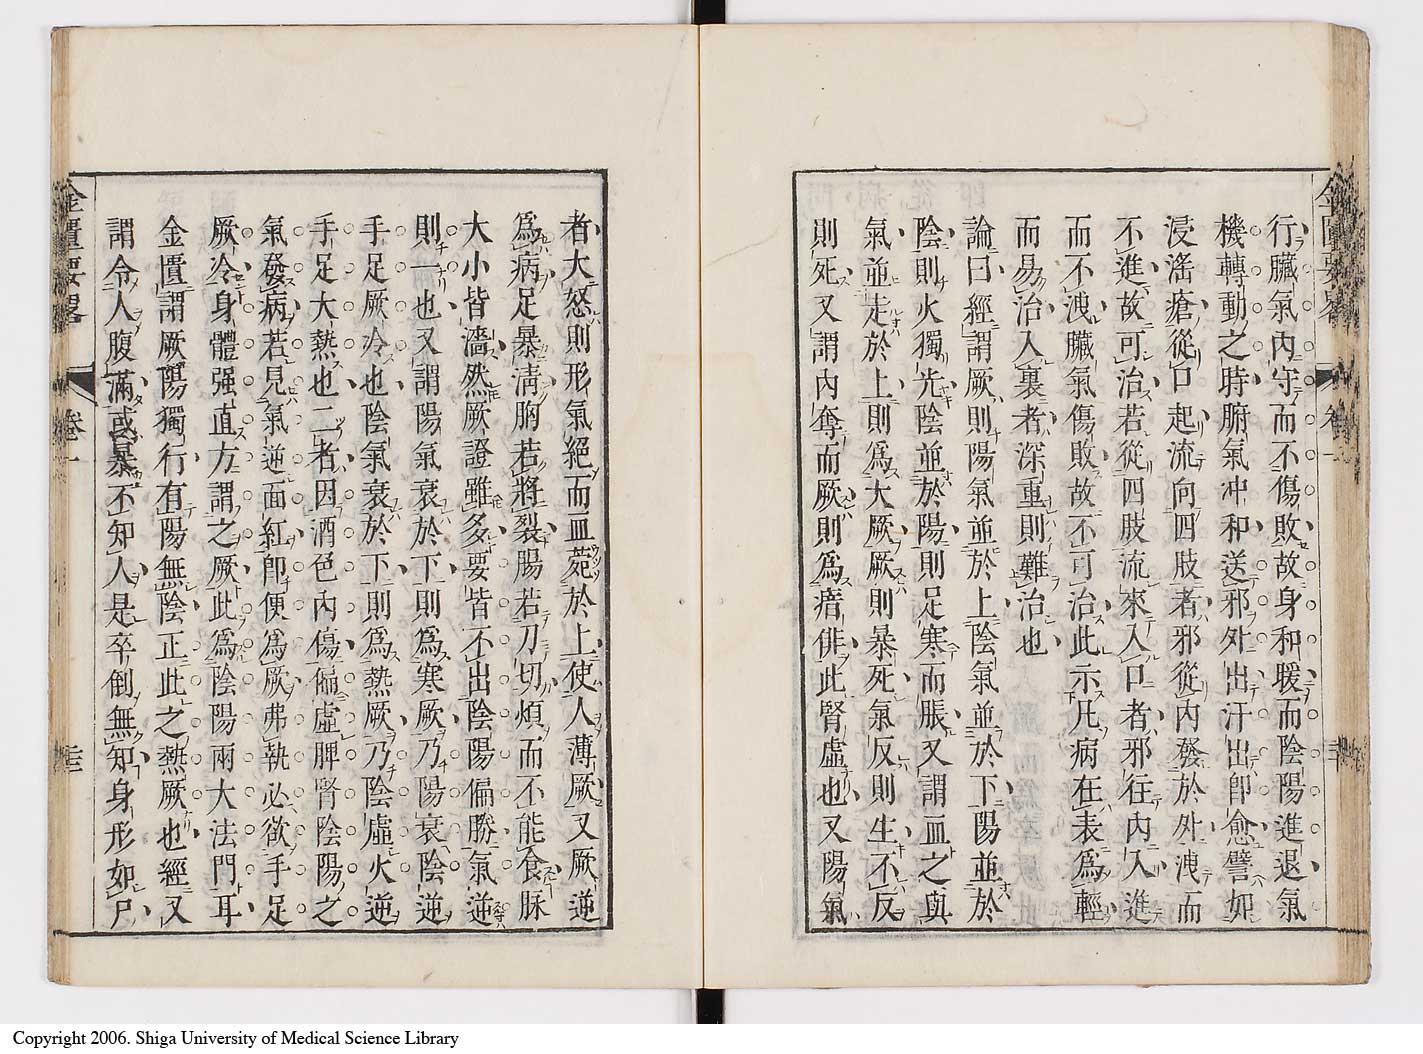 行臟氣內守而不傷敗故身和暖而陰陽進退氣
機轉動之時腑氣冲和送邪外出汗出卽愈譬如
浸淫瘡從口起流向四肢者邪從內發於外洩而
不進故可治若從四肢流來入口者邪往內入進
而不洩臟氣傷敗故不可治此示凡病在表爲輕
而易治入裏者深重則難治也
論曰經謂厥則陽氣並於上陰氣並於下陽並於
陰則火獨光陰並於陽則足寒而脹又謂血之與
氣並走於上則爲大厥厥則暴死氣反則生不反
則死又謂內奪而厥則爲瘖俳此腎虛也又陽氣
者大怒則形氣絕而血菀於上使人薄厥又厥逆
爲病足暴淸胸若將裂腸若刀切煩而不能食脉
大小皆濇然厥證雖多要皆不出陰陽偏勝氣逆
則一也又謂陽氣衰於下則爲寒厥乃陽衰陰逆
手足厥冷也陰氣衰於下則爲熱厥乃陰虛火逆
手足大熱也二者因酒色內傷偏虛脾腎陰陽之
氣發病若見氣逆面紅卽便爲厥弗執必欲手足
厥冷身體强直方謂之厥此爲陰陽兩大法門耳
金匱謂厥陽獨行有陽無陰正此之熱厥也經又
謂令人腹滿或暴不知人是卒倒無知身形如尸
金匱要畧 卷一